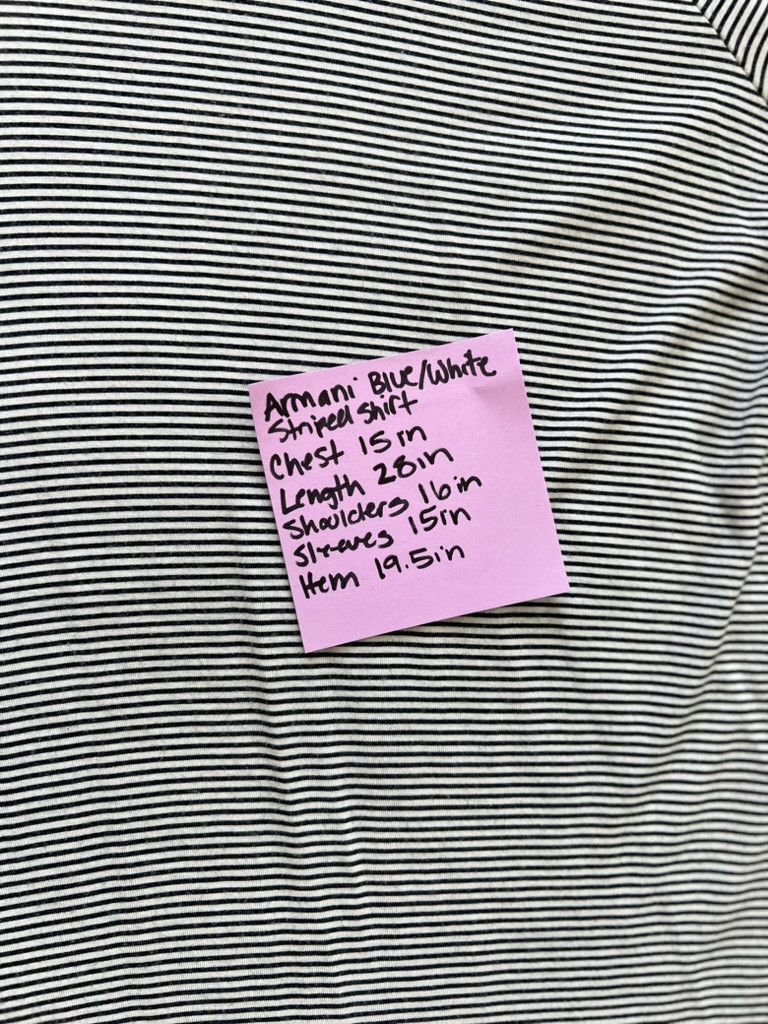 Armani Blue/White
Striped Shirt
Chest 15in
Length 28in
Shoulders 16in
Sleeves 15in
Hem 19.5in